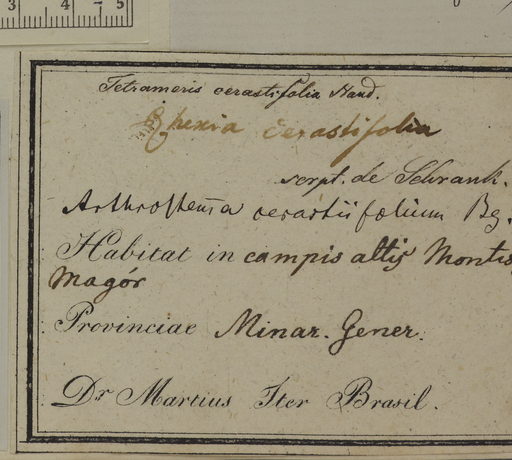 3 4 5
Tetrameris cerastifolia Naud.
Rhexia cerastifolia
script. de Schrank.
Arthrostema cerastiifolium
Habitat in campis altis Montis
Magór
Provinciae Minar. Gener.
Dr Martius Iter Brasil.